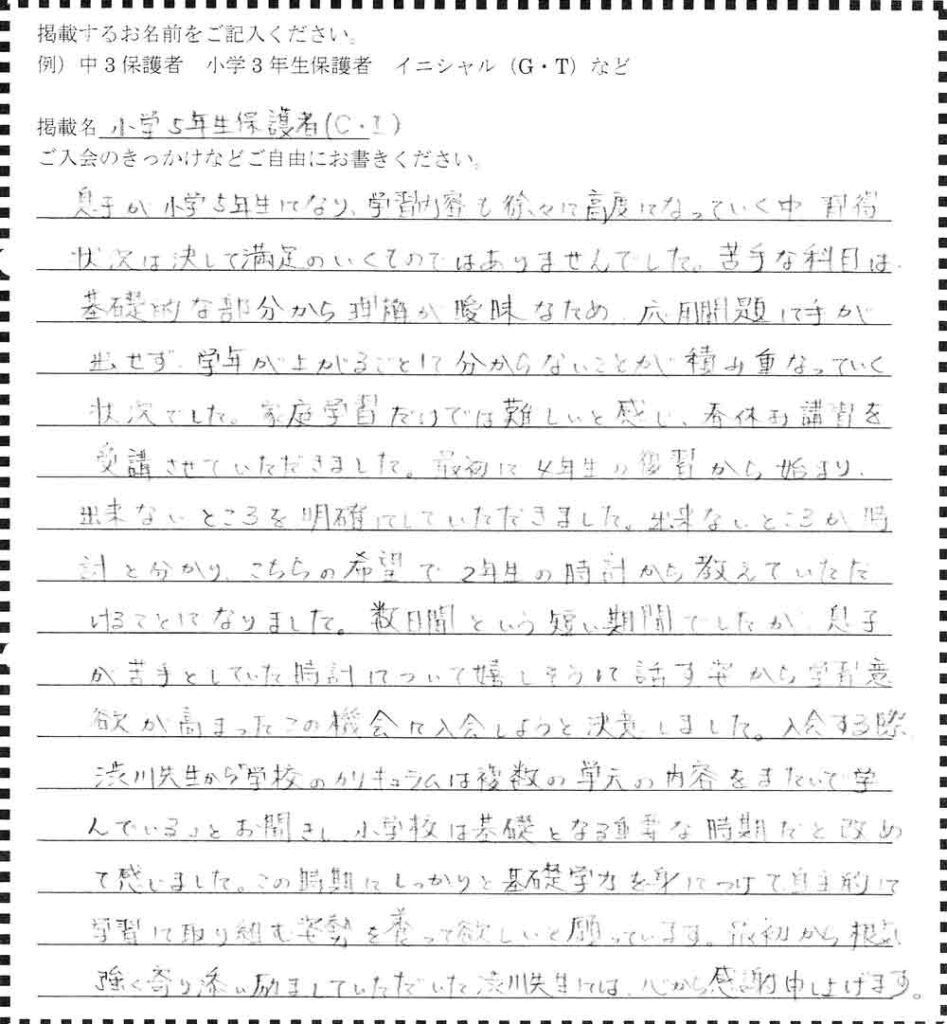 掲載するお名前をご記入ください。
例）中３保護者　小学３年生保護者　イニシャル（G・T）など
掲載名 小学5年生保護者(C・I)
ご入会のきっかけなどご自由にお書きください。
息子が小学5年生になり、学習内容も徐々に高度になっていく中 習得
状況は決して満足のいくものではありませんでした。苦手な科目は、
基礎的な部分から理解が曖昧なため、応用問題に手が
出せず、学年が上がるごとに分からないことが積み重なっていく
状況でした。家庭学習だけでは難しいと感じ、春休み講習を
受講させていただきました。最初に4年生の復習から始まり、
出来ないところを明確にしていただきました。出来ないところが時
計と分かり、こちらの希望で2年生の時計から教えていただ
けることになりました。数日間という短い期間でしたが、息子
が苦手としていた時計について嬉しそうに話す姿から学習意
欲が高まったこの機会に入会しようと決意しました。入会する際、
渋川先生から「学校のカリキュラムは複数の単元の内容をまたいで学
んでいる」とお聞きし、小学校は基礎となる重要な時期だと改め
て感じました。この時期にしっかりと基礎学力を身につけて自主的に
学習に取り組む姿勢を養って欲しいと願っています。最初から根気
強く寄り添い励ましていただいた渋川先生には、心から感謝申し上げます。